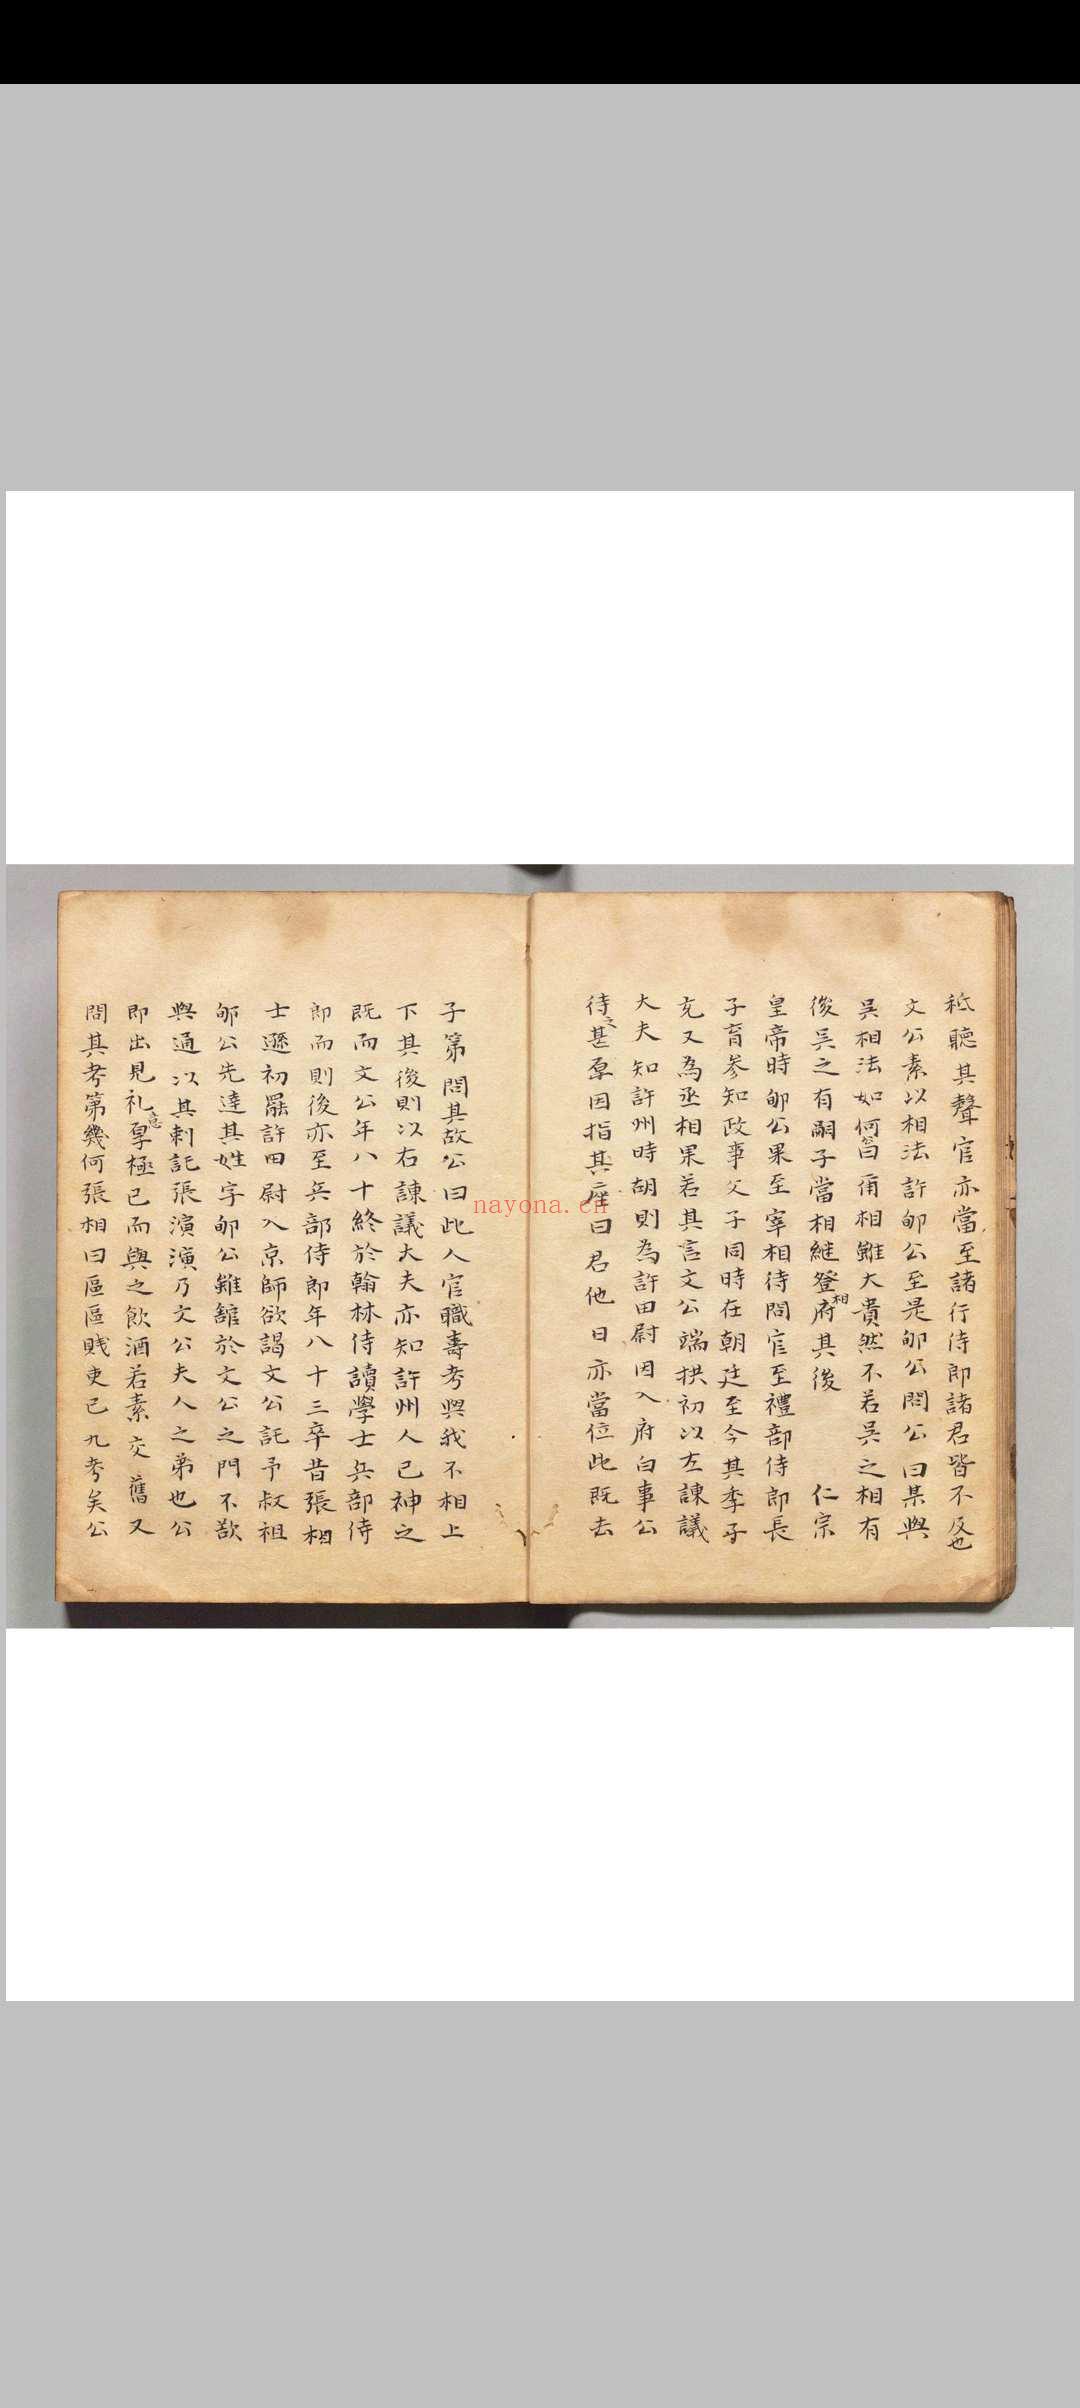 袛聽其聲官亦當至諸行侍郎諸君皆不及也
文公素以相法許郇公至是郇公問公曰某與
吳相法如何公曰甭相雖大貴然不若吳之相有
後吳之有嗣子當相継登相府其後 仁宗
皇帝時郇公果至宰相待問官至禮部侍郎長
子育叅知政事父子同時在朝廷至今其季子
充又為丞相果若其言文公端拱初以左諫議
大夫知許州時胡則為許田尉因入府白事公
待之甚厚因指其座曰君他日亦當位此既去
子第問其故公曰此人官職壽考與我不相上
下其後則以右諫議大夫亦知許州人已神之
既而文公年八十終於翰林侍讀學士兵部侍
郎而則後亦至兵部侍郎年八十三卒昔張相
士遜初罷許田尉入京師欲謁文公託予叔祖
郇公先達其姓字郇公雖舘於文公之門不欲
與通以其刺託張演演乃文公夫人之弟也公
即出見礼意厚極已而與之飲酒若素交舊又
問其考第幾何張相曰區區賎吏已九考矣公
nayona.cn